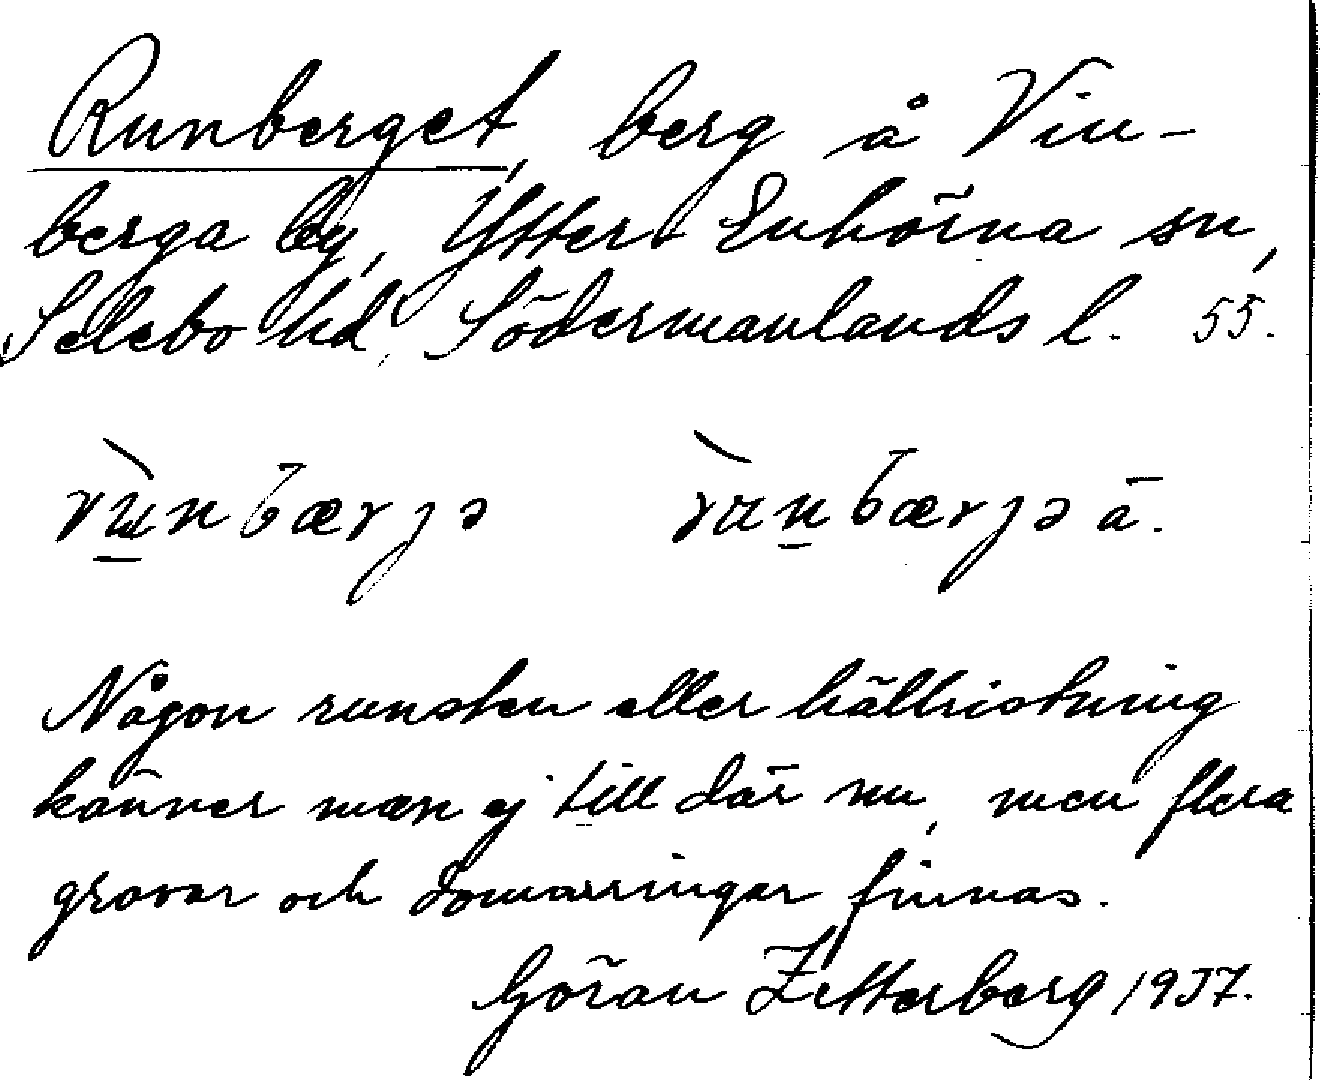 Runberget, berg å Vin-
berga by, Ytter Enhörna sn,
Selebo hd, Södermanlands l. 55.
Någon runsten eller hällristning
känner man ej till där nu, men flera
gravar och domarringar finnas.
Göran Zetterberg 1937.